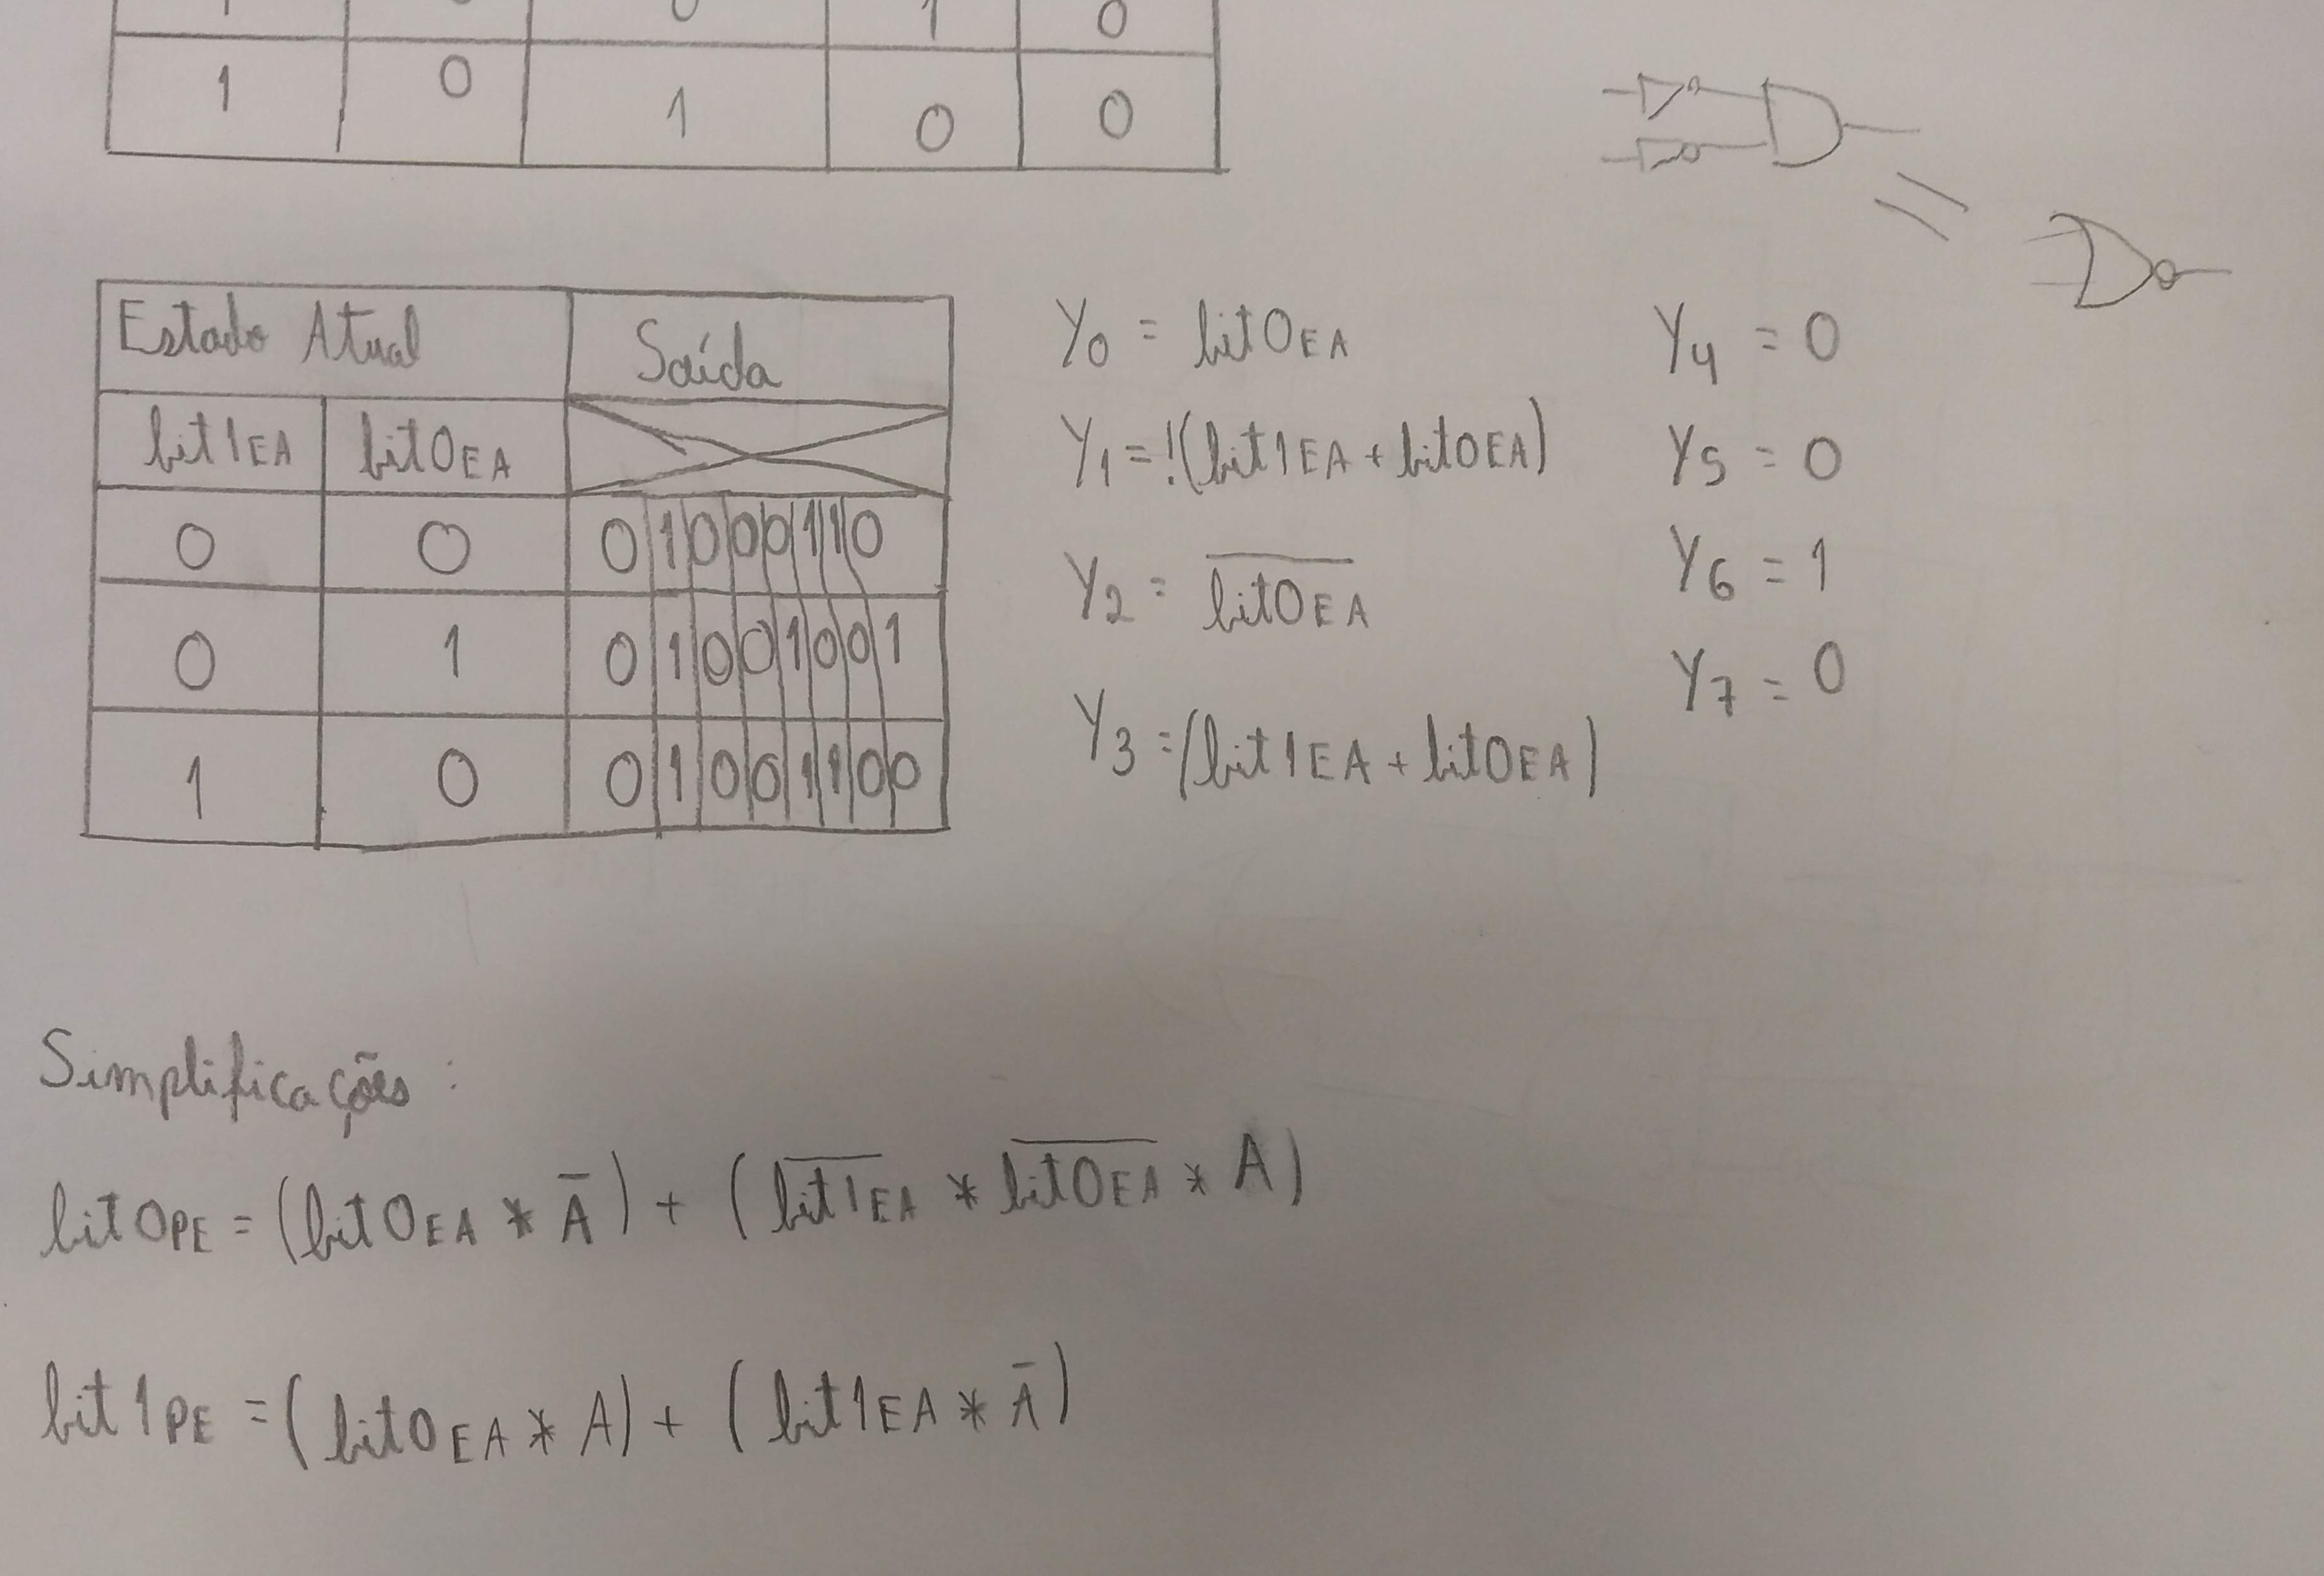 1 0 0 1 0
1 0 1 0 0
Estado Atual Saída
bit1EA bit0EA
0 0 01000110
0 1 01001001
1 0 01001100
Y0 = bit0EA
Y1 = !(bit1EA + bit0EA)
Y2 = \overline{bit0EA}
Y3 = (bit1EA + bit0EA)
Y4 = 0
Y5 = 0
Y6 = 1
Y7 = 0
Simplificações:
bit0PE = (bit0EA * Ā) + (\overline{bit1EA} * \overline{bit0EA} * A)
bit1PE = (bit0EA * A) + (bit1EA * Ā)